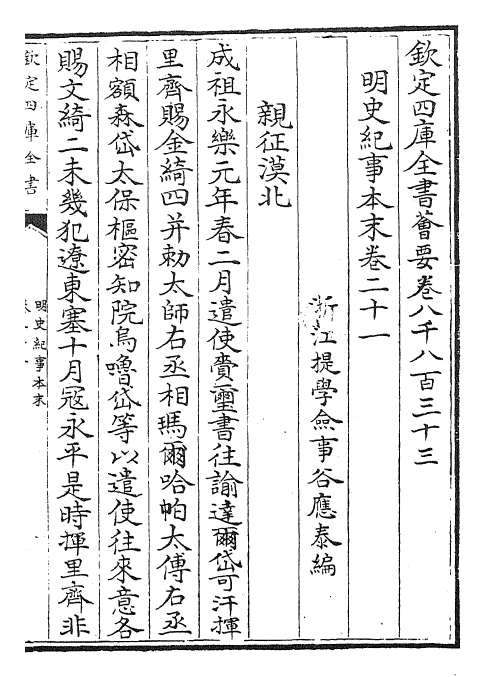 欽定四庫全書薈要卷八千八百三十三
明史紀事本末卷二十一
浙江提學僉事谷應泰編
親征漠北
成祖永樂元年春二月遣使賫璽書往諭達爾岱可汗揮
里齊賜金綺四并勅太師右丞相瑪爾哈帕太傅右丞
相額森岱太保樞密知院烏嚕岱等以遣使往來意各
賜文綺二未幾犯遼東塞十月寇永平是時揮里齊非
欽定四庫全書
明史紀事本末